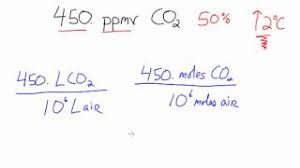 450. ppmv CO₂ 50% ↑2°C
450. L CO₂
10⁶ L air
450. moles CO₂
10⁶ moles air